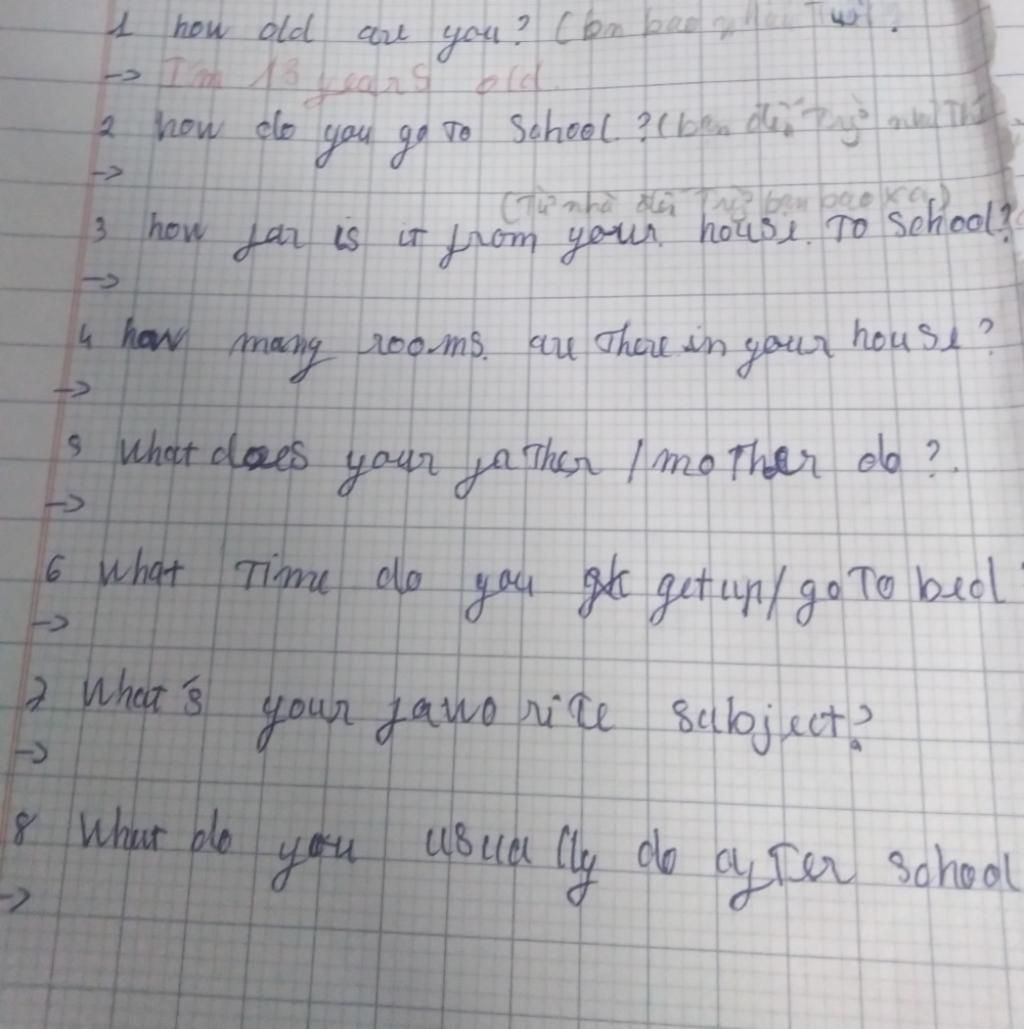 1 how old are you? (bn bao nhiêu Tuổi?
-> I'm 13 years old
2 how do you go To School? (bạn đến
->
(Từ nhà đến bạn bao xa)
3 how far is it from your house To School?
->
4 how many rooms are There in your house?
->
5 What does your faTher / moTher do?
->
6 What Time do you get up / go To bed
->
7 What's your favoriTe subject?
->
8 What do you usually do afTer school
->